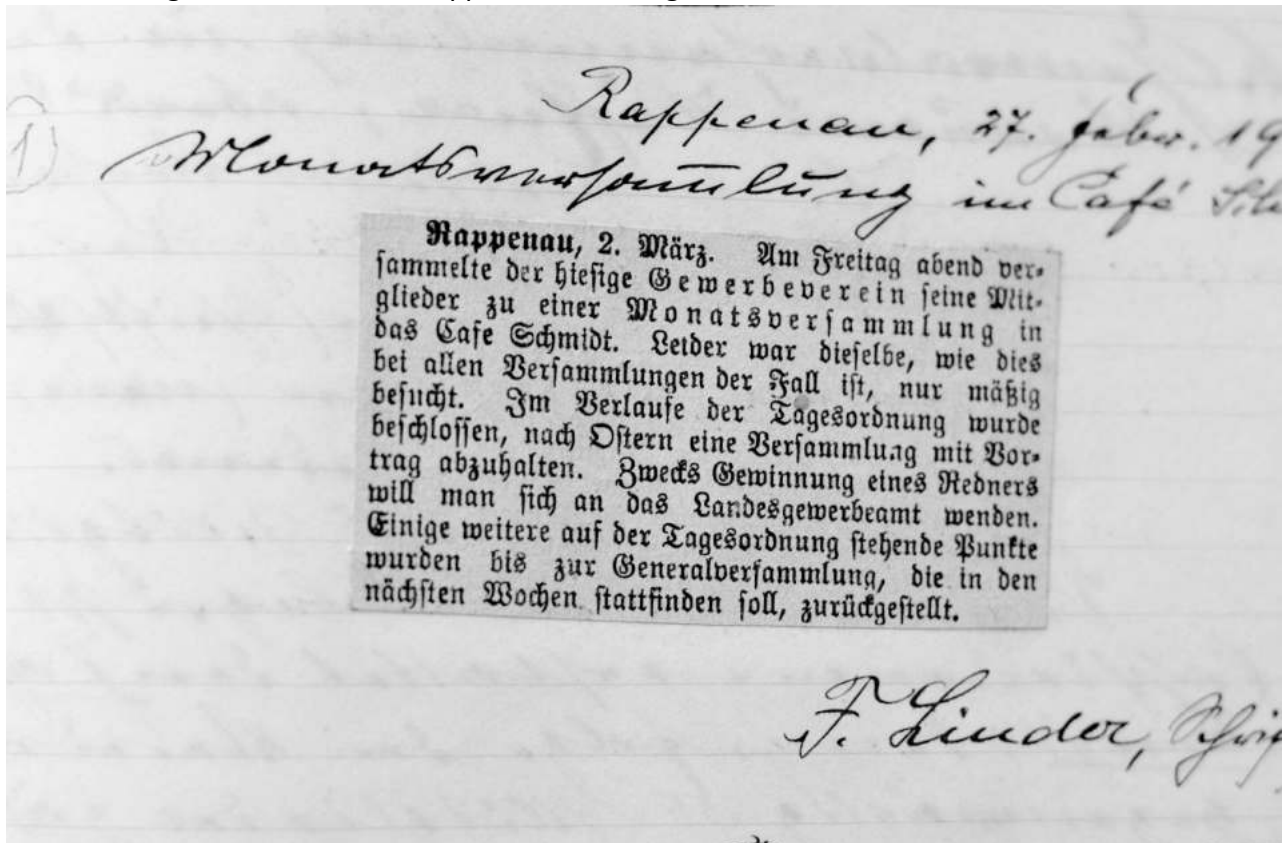 Rappenau, 27. Febr. 19
1)
Monatsversammlung im Café
Rappenau, 2. März. Am Freitag abend ver-
sammelte der hiesige Gewerbeverein seine Mit-
glieder zu einer Monatsversammlung in
das Cafe Schmidt. Leider war dieselbe, wie dies
bei allen Versammlungen der Fall ist, nur mäßig
besucht. Im Verlaufe der Tagesordnung wurde
beschlossen, nach Ostern eine Versammlung mit Vor-
trag abzuhalten. Zwecks Gewinnung eines Redners
will man sich an das Landesgewerbeamt wenden.
Einige weitere auf der Tagesordnung stehende Punkte
wurden bis zur Generalversammlung, die in den
nächsten Wochen stattfinden soll, zurückgestellt.
F. Linder, Schrif